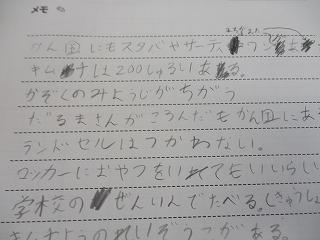 メモ
かん国にもスタバやサーティワン
キムチは200しゅるいある。
かぞくのみょうじがちがう
だるまさんがころんだもかん国にあ
ランドセルはつかわない。
ロッカーにおやつをいれてもいいらし
学校の ぜんいんでたべる。(きゅうしょ
キムチようのれいぞうこがある。